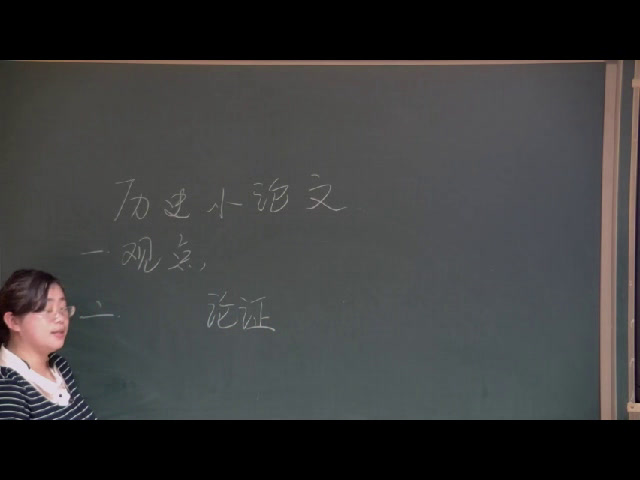 历史小论文
一 观点,
二 论证